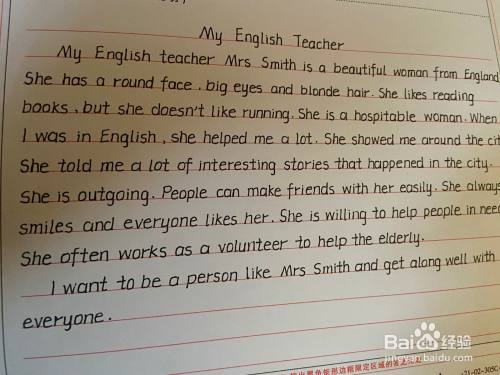 My English Teacher
My English teacher Mrs Smith is a beautiful woman from England
She has a round face, big eyes and blonde hair. She likes reading
books, but she doesn't like running. She is a hospitable woman. When
I was in English, she helped me a lot. She showed me around the cit
She told me a lot of interesting stories that happened in the city.
She is outgoing. People can make friends with her easily. She always
smiles and everyone likes her. She is willing to help people in need
She often works as a volunteer to help the elderly.
I want to be a person like Mrs Smith and get along well with
everyone.
Baidu经验
jingyan.baidu.com
出黑色矩形边框限定区域的答案无效